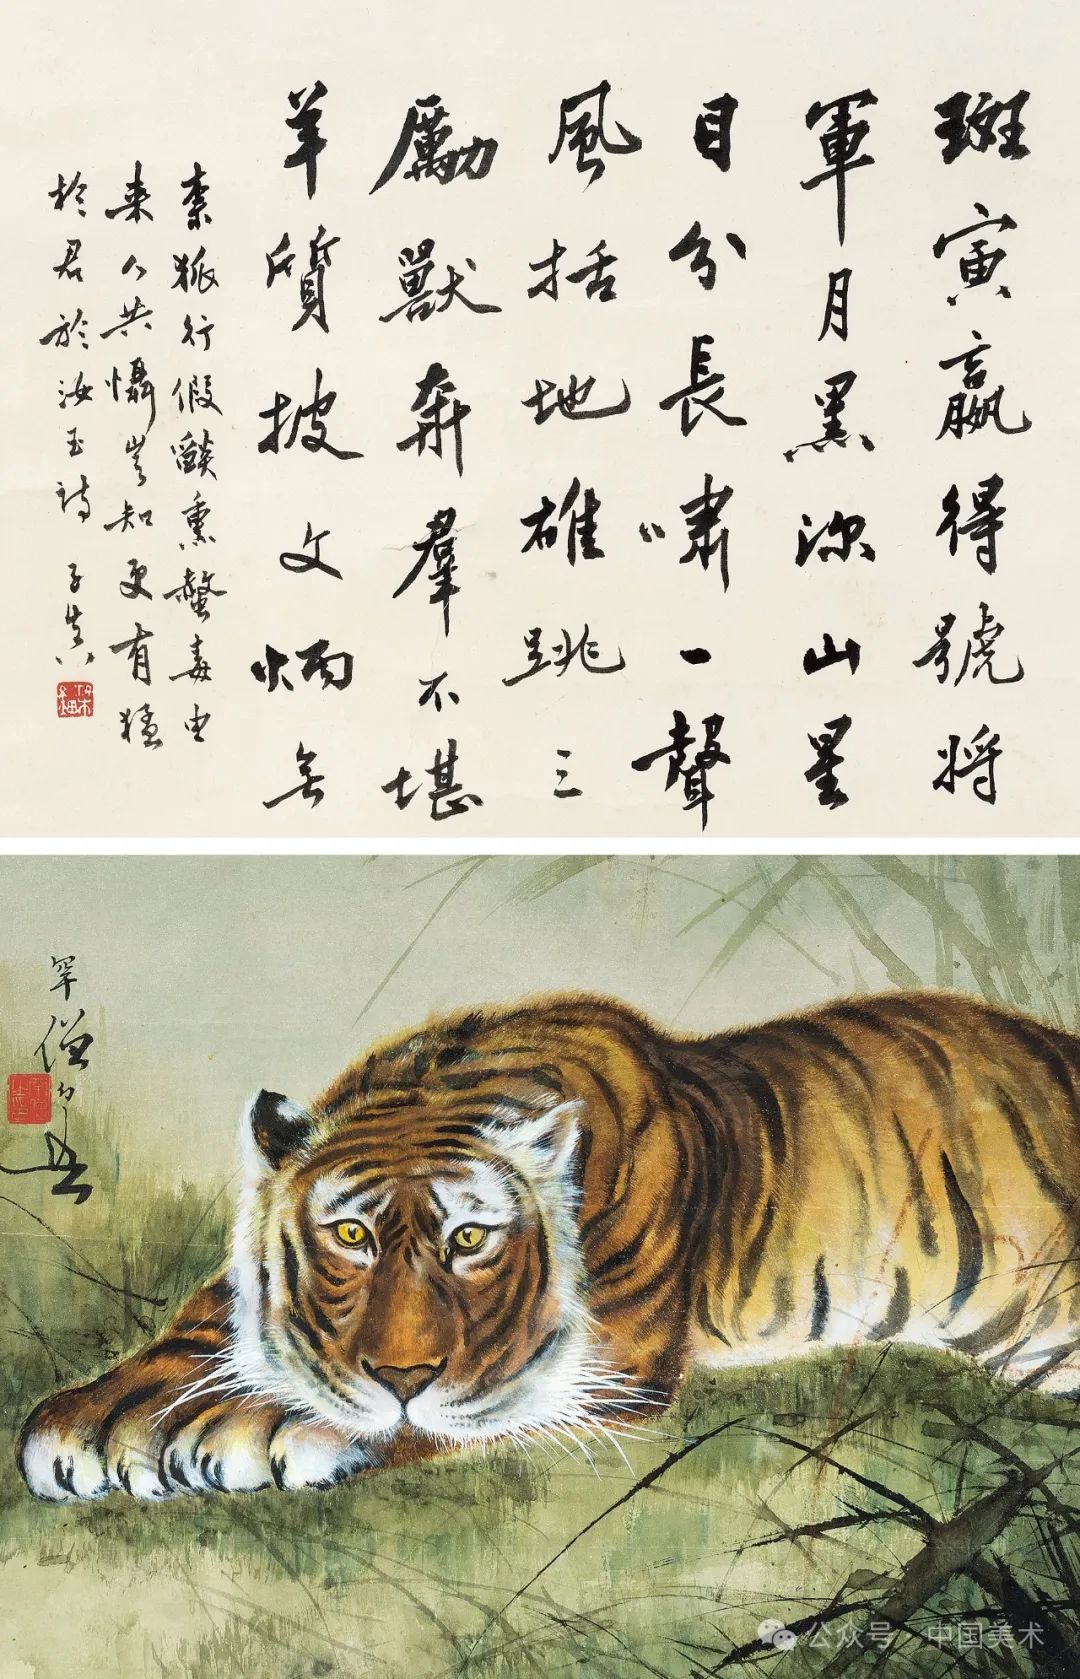 斑寅贏得號將
軍月黑深山星
目分長嘯一聲
風括地雄跳三
勵獸奔羣不堪
羊質披文炳無
柰狐行假燄熏螫毒由
來人共懾豈知更有猛
於君於汝玉詩 子真
公众号 中国美术